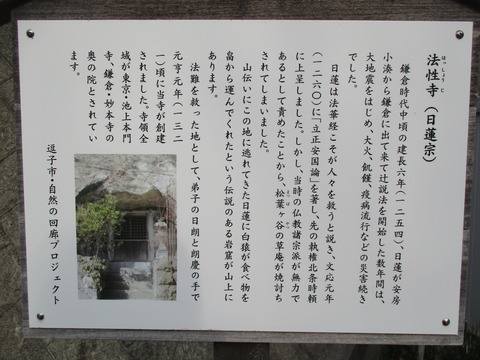 法性寺（日蓮宗）
ほっしょうじ
鎌倉時代中頃の建長六年（一二五四）、日蓮が安房
小湊から鎌倉に出て来て辻説法を開始した数年間は、
大地震をはじめ、大火、飢饉、疫病流行などの災害続き
でした。
日蓮は法華経こそが人々を救うと説き、文応元年
（一二六〇）に「立正安国論」を著し、先の執権北条時頼
に上呈しました。しかし、当時の仏教諸宗派が無力で
あるとして責めたことから、松葉ヶ谷の草庵が焼討ち
されてしまいました。
山伝いにこの地に逃れてきた日蓮に白猿が食べ物を
畠から運んでくれたという伝説のある岩窟が山上に
あります。
法難を救った地として、弟子の日朗と朗慶の手で
元亨元年（一三二
一）頃に当寺が創建
されました。寺領全
域が東京・池上本門
寺、鎌倉・妙本寺の
奥の院とされてい
ます。
逗子市・自然の回廊プロジェクト